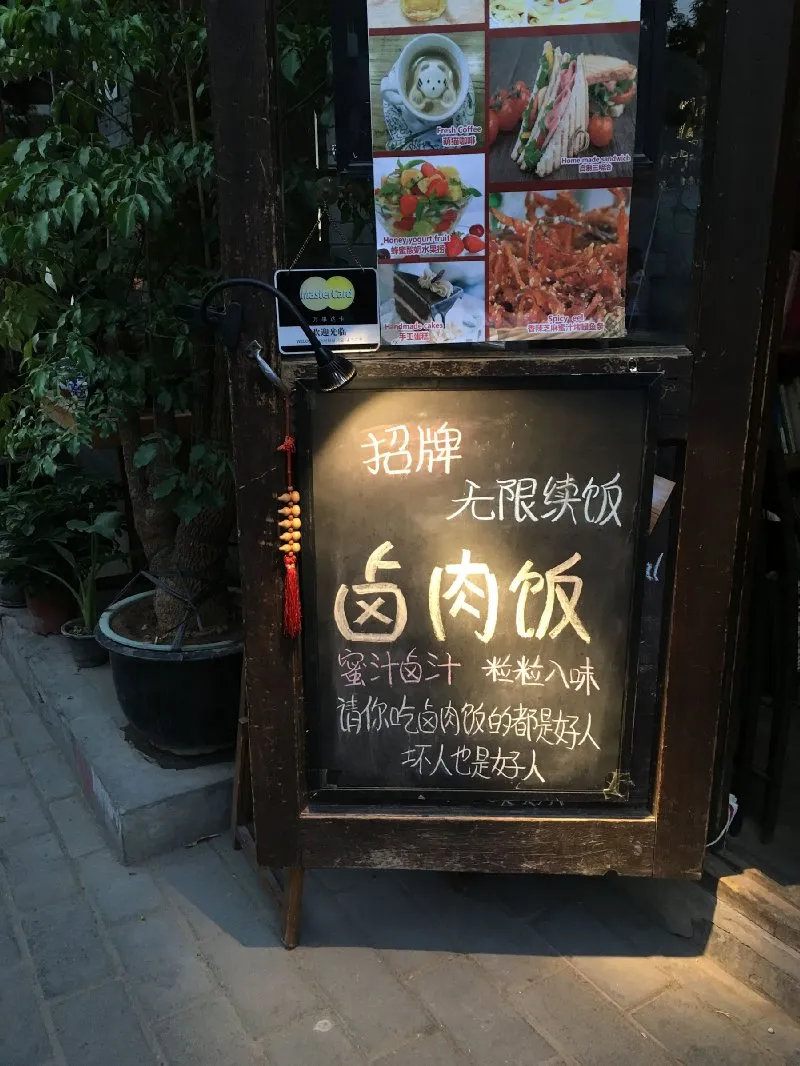 Fresh Coffee
萌猫咖啡
Home made sandwich
Honey yogurt fruit
蜂蜜酸奶水果捞
Handmade cakes
手工蛋糕
Spicy eel
MasterCard
万事达卡
欢迎光临
招牌
无限续饭
卤肉饭
蜜汁卤汁 粒粒入味
请你吃卤肉饭的都是好人
坏人也是好人